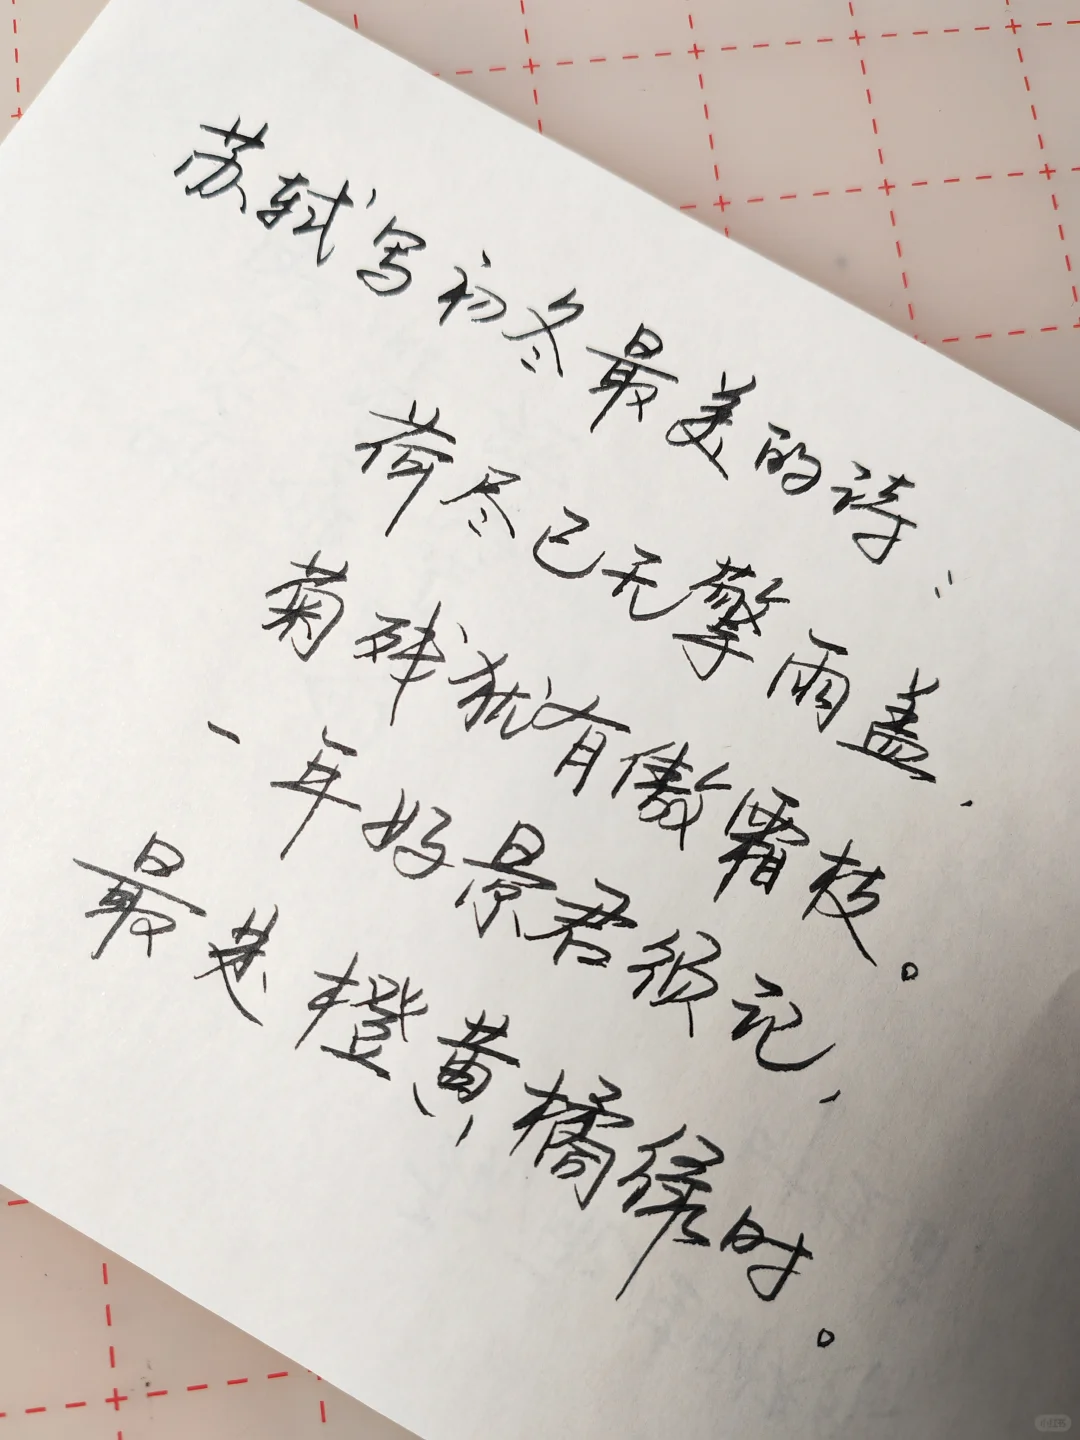 苏轼写初冬最美的诗：
荷尽已无擎雨盖，
菊残犹有傲霜枝。
一年好景君须记，
最是橙黄橘绿时。
小红书